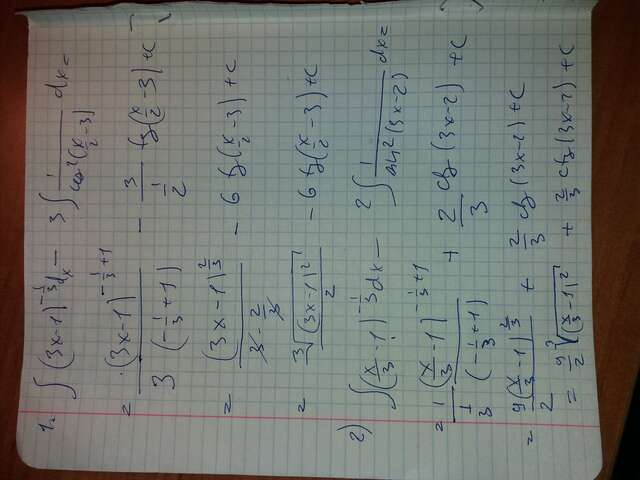 1. ∫ (3x-1)^{-1/3} dx - 3 ∫ 1/(cos²(x/2 - 3)) dx =
= (3x-1)^{-1/3+1} / (3 (-1/3+1)) - 3/(1/2) tg(x/2 - 3) + c
= (3x-1)^{2/3} / (3 · 2/3) - 6 tg(x/2 - 3) + c
= ∛((3x-1)²) / 2 - 6 tg(x/2 - 3) + c
2) ∫ (x/3 - 1)^{-1/3} dx - 2 ∫ 1/(sin²(3x-2)) dx =
= 1/(1/3) (x/3 - 1)^{-1/3+1} / (-1/3+1) + 2/3 ctg (3x-2) + c
= 9(x/3 - 1)^{2/3} / 2 + 2/3 ctg (3x-2) + c
= 9/2 ∛((x/3 - 1)²) + 2/3 ctg (3x-2) + c